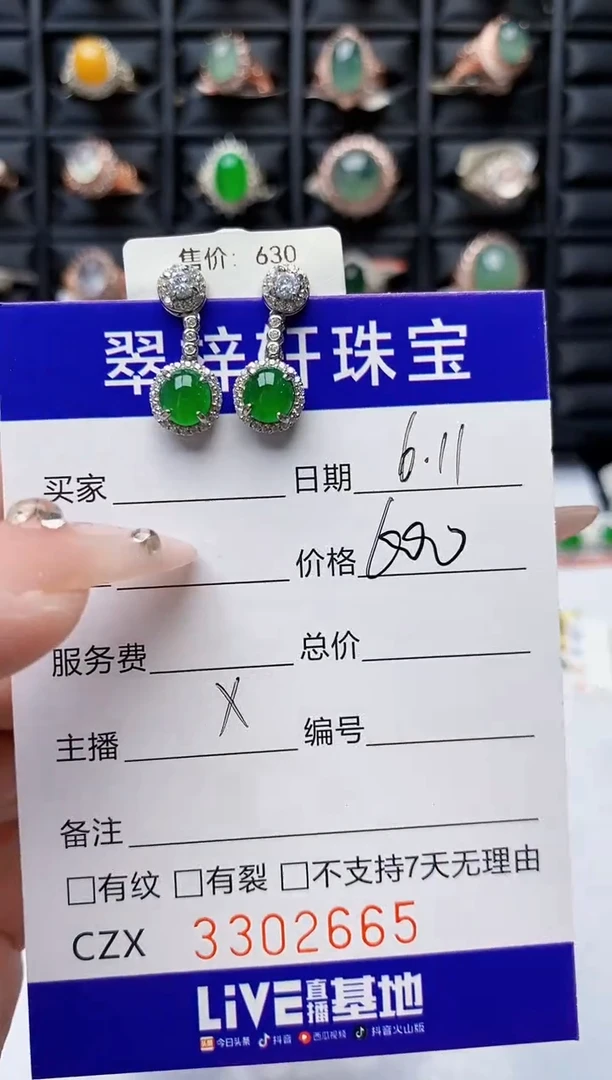 售价: 630
翠梓轩珠宝
买家 日期 6.11
价格
服务费 总价
主播 X 编号
备注
□有纹 □有裂 □不支持7天无理由
CZX 3302665
LiVE直播基地
头条 今日头条 抖音 西瓜视频 抖音火山版